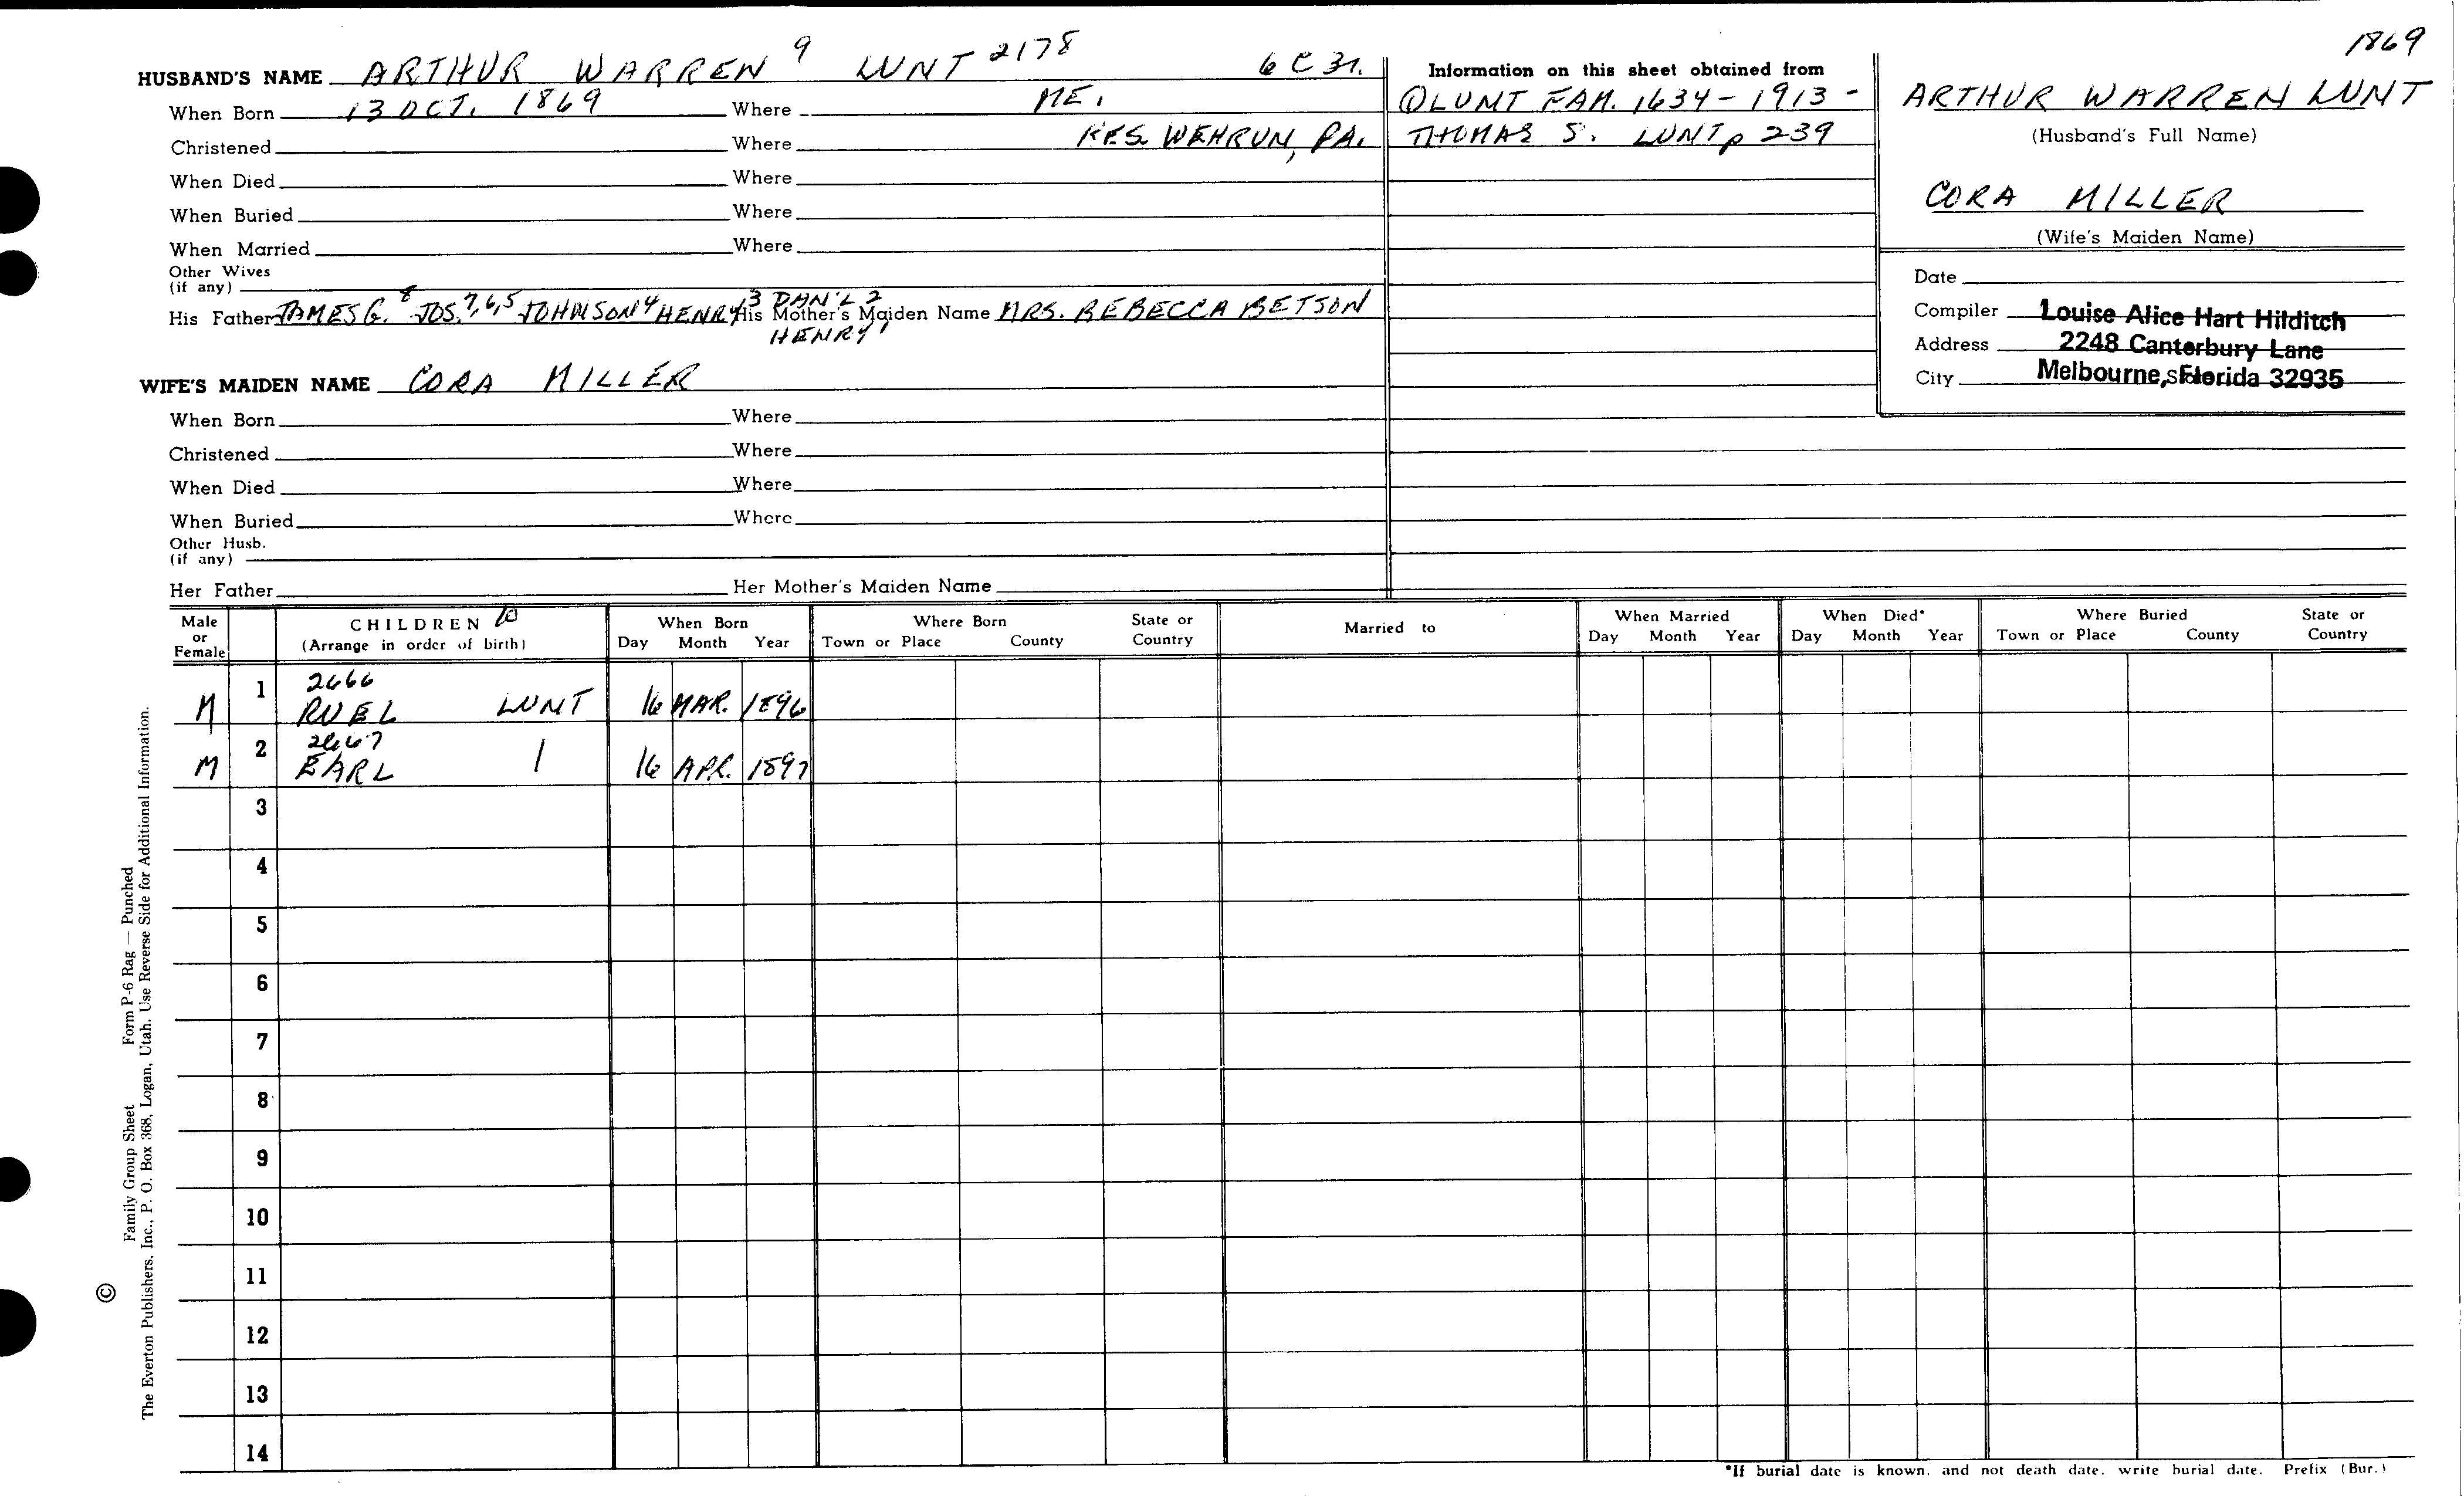 1869
HUSBAND'S NAME ARTHUR WARREN 9 LUNT 2178 6 C 31.
When Born 13 OCT. 1869 Where ME.
Christened Where RES. WEHRUN, PA.
When Died Where
When Buried Where
When Married Where
Other Wives
(if any)
His Father JAMES G. 8 JOS. 7,6,5 JOHNSON 4 HENRY 3 DAN'L 2 HENRY 1 His Mother's Maiden Name MRS. REBECCA BETSON
WIFE'S MAIDEN NAME CORA MILLER
When Born Where
Christened Where
When Died Where
When Buried Where
Other Husb.
(if any)
Her Father Her Mother's Maiden Name
Information on this sheet obtained from
LUNT FAM. 1634-1913-
THOMAS S. LUNT p 239
ARTHUR WARREN LUNT
(Husband's Full Name)
CORA MILLER
(Wife's Maiden Name)
Date
Compiler Louise Alice Hart Hilditch
Address 2248 Canterbury Lane
City Melbourne, Florida 32935
Male or Female CHILDREN 10 (Arrange in order of birth) When Born Day Month Year Where Born Town or Place County State or Country Married to When Married Day Month Year When Died* Day Month Year Where Buried Town or Place County State or Country
M 1 2666 RUEL LUNT 16 MAR. 1896
M 2 2667 EARL 16 APR. 1897
3
4
5
6
7
8
9
10
11
12
13
14
*If burial date is known, and not death date, write burial date. Prefix (Bur.)
Family Group Sheet Form P-6 Rag — Punched
© The Everton Publishers, Inc., P. O. Box 368, Logan, Utah. Use Reverse Side for Additional Information.